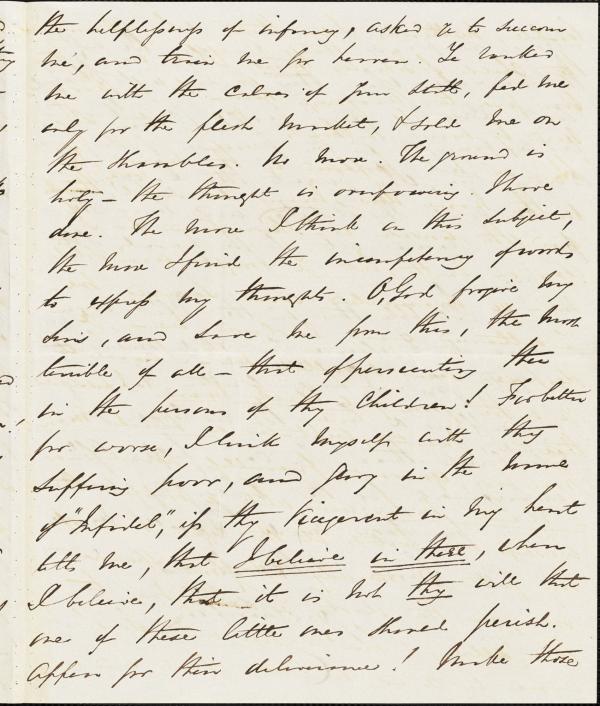 the helplessness of infancy, asked ye to succour
me, and train me for heaven. Ye ranked
me with the calves of your stall, fed me
only for the flesh market, & sold me on
the shambles. No more. The ground is
holy – the thought is overpowering. I have
done. The more I think on this subject,
the more I find the incompetency of words
to express my thoughts. O, God forgive my
sins, and save me from this, the most
terrible of all – that of persecuting thee
in the persons of thy Children! For better
for worse, I link myself with thy
suffering poor, and glory in the name
of "Infidel", if thy Vicegerent in my heart
tells me, that I believe in thee, when
I believe, that it is not thy will that
one of these little ones should perish.
Appear for their deliverance! Make those